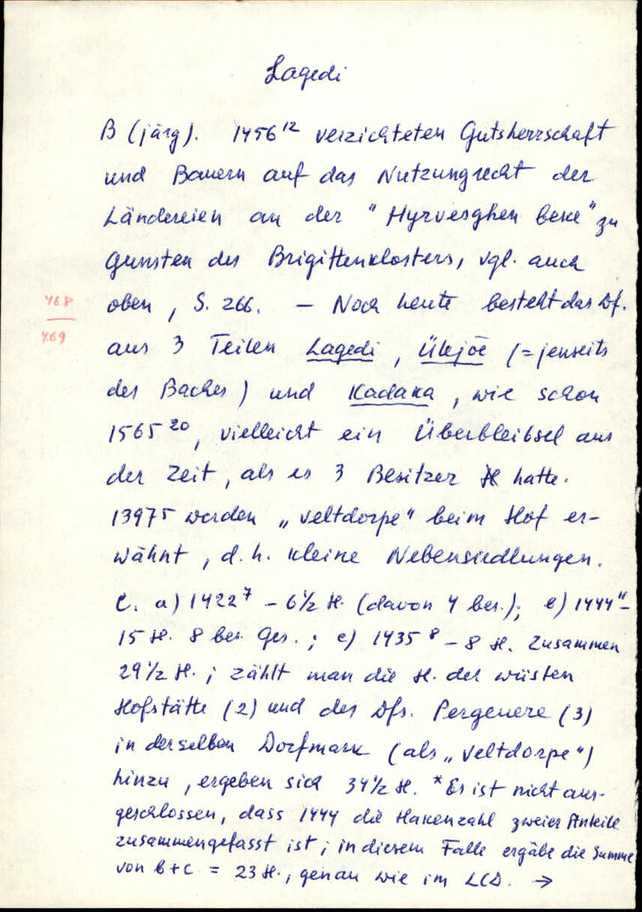 Lagedi
B (järg). 1456¹² verzichteten Gutsherrschaft
und Bauern auf das Nutzungrecht der
Ländereien an der "Hyrvesghen beke" zu
Gunsten des Brigittenklosters, vgl. auch
oben, S. 266. — Noch heute besteht das Df.
468
469
aus 3 Teilen Lagedi, Ülejõe (= jenseits
des Baches) und Kadaka, wie schon
1565²⁰, vielleicht ein Überbleibsel aus
der Zeit, als es 3 Besitzer hatte.
1397⁵ werden „veltdorpe" beim Hof er-
wähnt, d.h. kleine Nebensiedlungen.
C. a) 1422⁷ – 6½ H. (davon 4 bes.); b) 1444¹¹ –
15 H. 8 bes. Ges.; c) 1435⁸ – 8 H. Zusammen
29½ H.; zählt man die H. der wüsten
Hofstätte (2) und des Dfs. Pergenere (3)
in derselben Dorfmark (als „veltdorpe")
hinzu, ergeben sich 34½ H. *Es ist nicht aus-
geschlossen, dass 1444 die Hakenzahl zweier Anteile
zusammengefasst ist; in diesem Falle ergäbe die Summe
von b+c = 23 H., genau wie im LCD. →